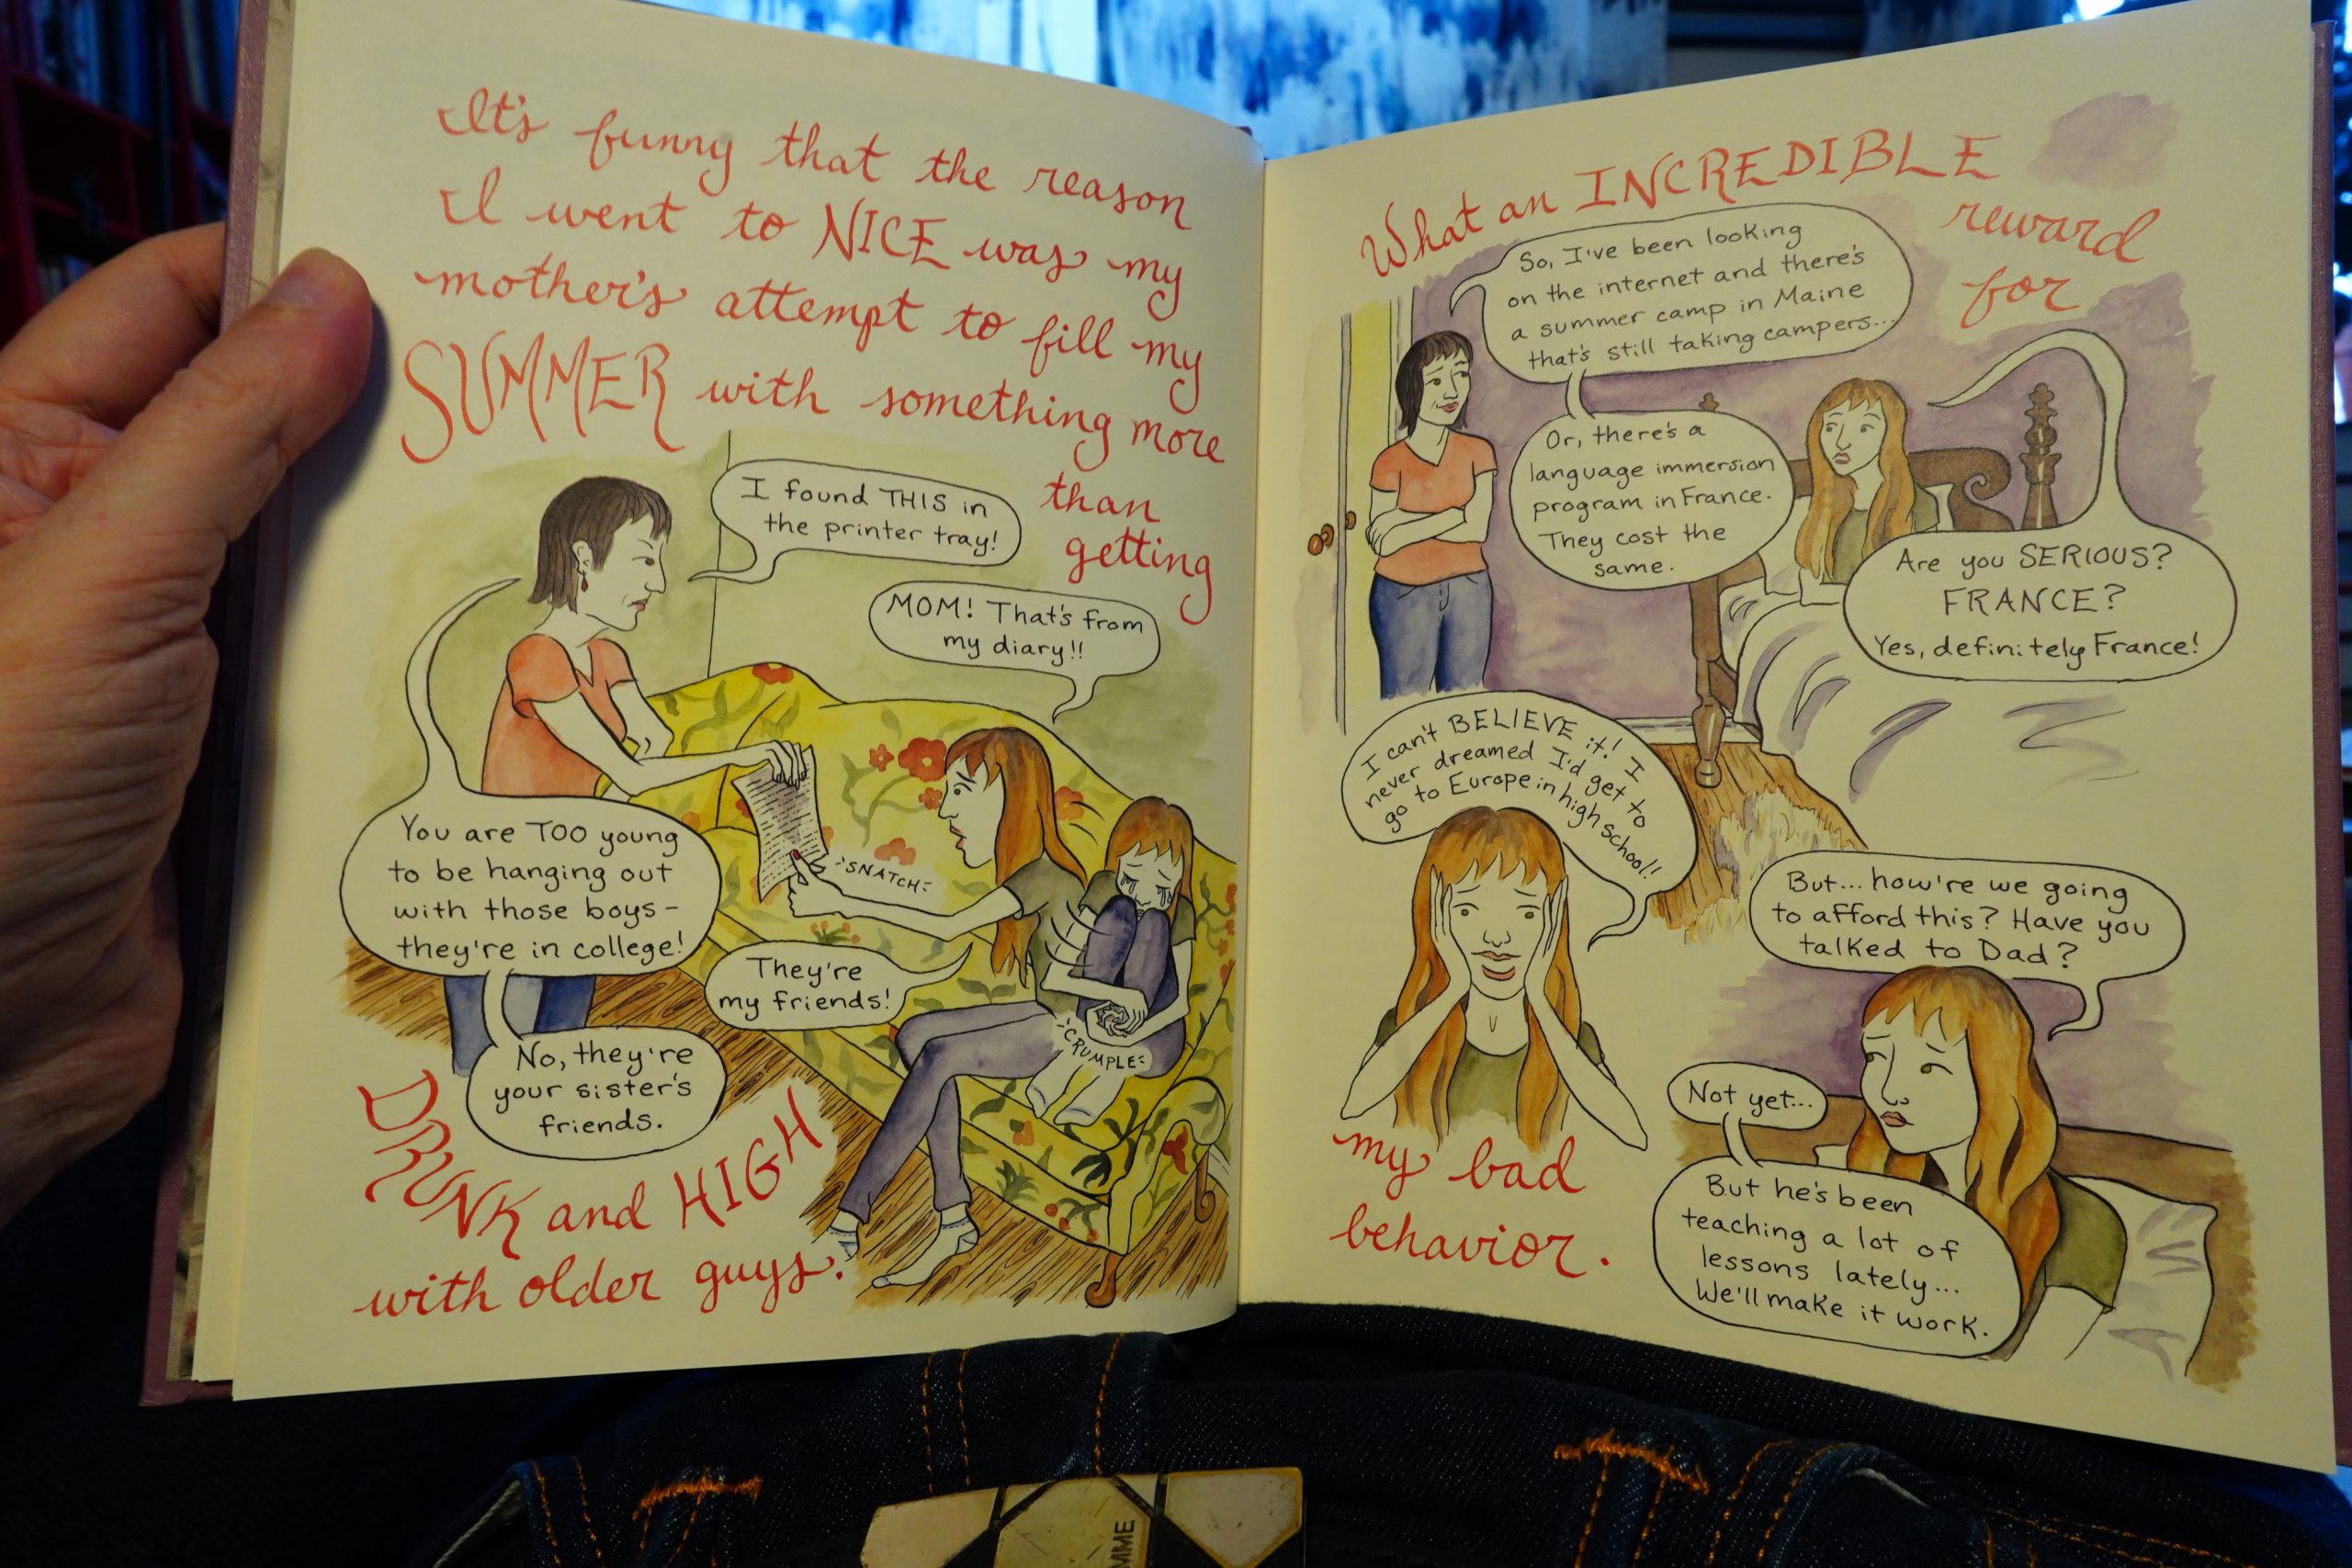 It's funny that the reason
I went to NICE was my
mother's attempt to fill my
SUMMER with something more
than
getting
I found THIS in
the printer tray!
MOM! That's from
my diary!!
You are TOO young
to be hanging out
with those boys-
they're in college!
SNATCH
They're
my friends!
CRUMPLE
No, they're
your sister's
friends.
DRUNK and HIGH
with older guys.
What an INCREDIBLE
reward
for
So, I've been looking
on the internet and there's
a summer camp in Maine
that's still taking campers...
Or, there's a
language immersion
program in France.
They cost the
same.
Are you SERIOUS?
FRANCE?
Yes, definitely France!
I can't BELIEVE it! I
never dreamed I'd get to
go to Europe in high school!!
But... how're we going
to afford this? Have you
talked to Dad?
Not yet...
But he's been
teaching a lot of
lessons lately...
We'll make it work.
my bad
behavior.